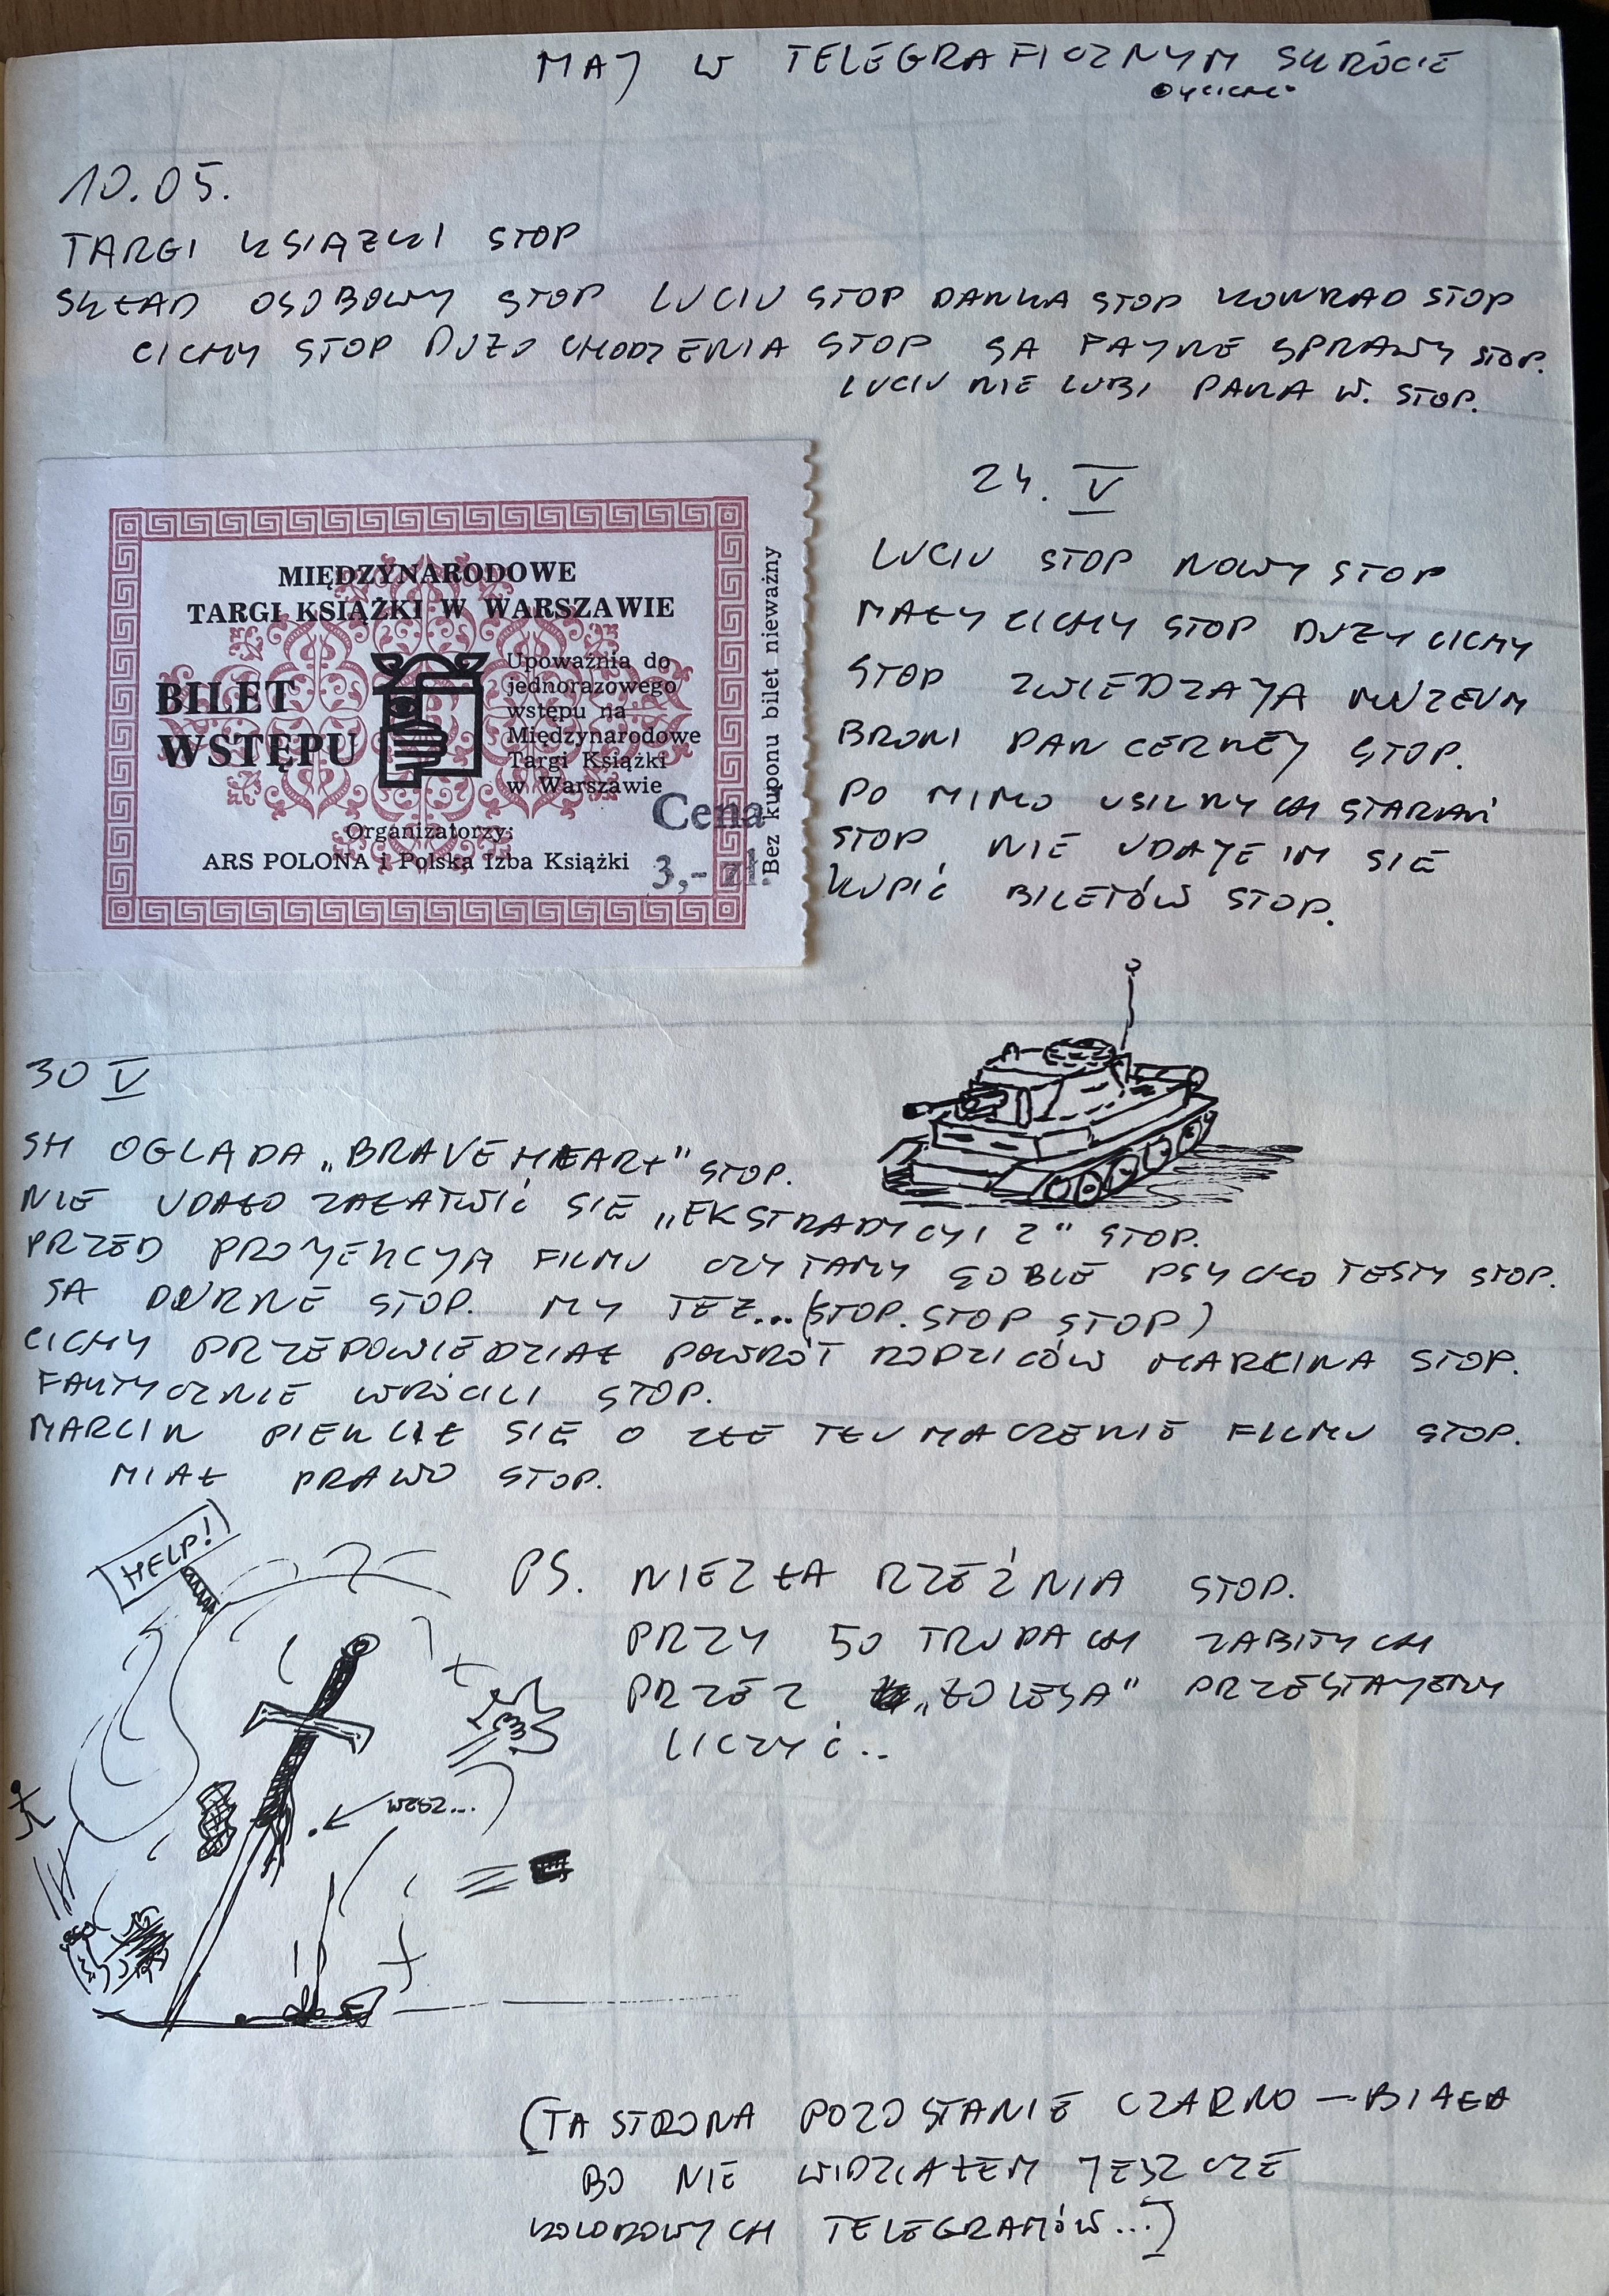 MAJ W TELEGRAFICZNYM SKRÓCIE
10.05.
TARGI KSIĄZKI STOP
SKŁAD OSOBOWY STOP LUCIU STOP DANKA STOP KONRAD STOP
CICHY STOP DUZO CHODZENIA STOP SA FAJNE SPRAWY STOP.
LUCIU NIE LUBI PANA W. STOP.
MIĘDZYNARODOWE
TARGI KSIĄŻKI W WARSZAWIE
BILET
WSTĘPU
Upoważnia do
jednorazowego
wstępu na
Międzynarodowe
Targi Książki
w Warszawie
Organizatorzy:
ARS POLONA i Polska Izba Książki
Cena
3,- zł.
Bez kuponu bilet nieważny
24. V
LUCIU STOP NOWY STOP
MAŁY CICHY STOP DUZY CICHY
STOP ZWIEDZAJA MUZEUM
BRONI PANCERNEJ STOP.
PO MIMO USILNYCH STARAŃ
STOP, NIE UDAJE IM SIE
KUPIĆ BILETÓW STOP.
30 V
SH OGLADA „BRAVE HEART" STOP.
NIE UDAŁO ZAŁATWIĆ SIE „EKSTRADYCYI 2" STOP.
PRZED PROJEKCJA FILMU CZYTAMY SOBIE PSYCHO TESTY STOP.
SA DURNE STOP. MY TEZ...(STOP. STOP STOP)
CICHY PRZEPOWIEDZIAŁ POWRÓT RODZICÓW MARCINA STOP.
FAKTYCZNIE WRÓCILI STOP.
MARCIN PIEKLIŁ SIE O ZŁE TŁUMACZENIE FILMU STOP.
MIAŁ PRAWO STOP.
HELP!
PS. NIEZŁA RZEŹNIA STOP.
PRZY 50 TRUPACH ZABITYCH
PRZEZ „ŁOLESA" PRZESTAJEMY
LICZYĆ..
WESZ...
(TA STRONA POZOSTANIE CZARNO – BIAŁA
BO NIE WIDZIAŁEM JESZCZE
KOLOROWYCH TELEGRAMÓW...)